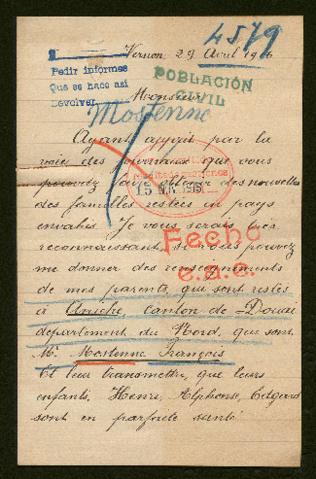 4579
Vernon, 29 Avril 1916
Pedir informes
Que se haco asi
Devolver
POBLACIÓN
CIVIL
Monsieur
Mostenne
Ayant appris par la
voie des journaux que vous
pouvez faire obtenir des nouvelles
des familles restées en pays
envahis. Je vous serais très
reconnaissant si vous pouvez
me donner des renseignements
de mes parents qui sont restés
à Aniche canton de Douai
département du Nord, que sont
Mr Mostenne François
Et leur transmettre, que leurs
enfants. Henri, Alphonse, Edgard
sont en parfaite santé
15 MAY. 1916
Fecho